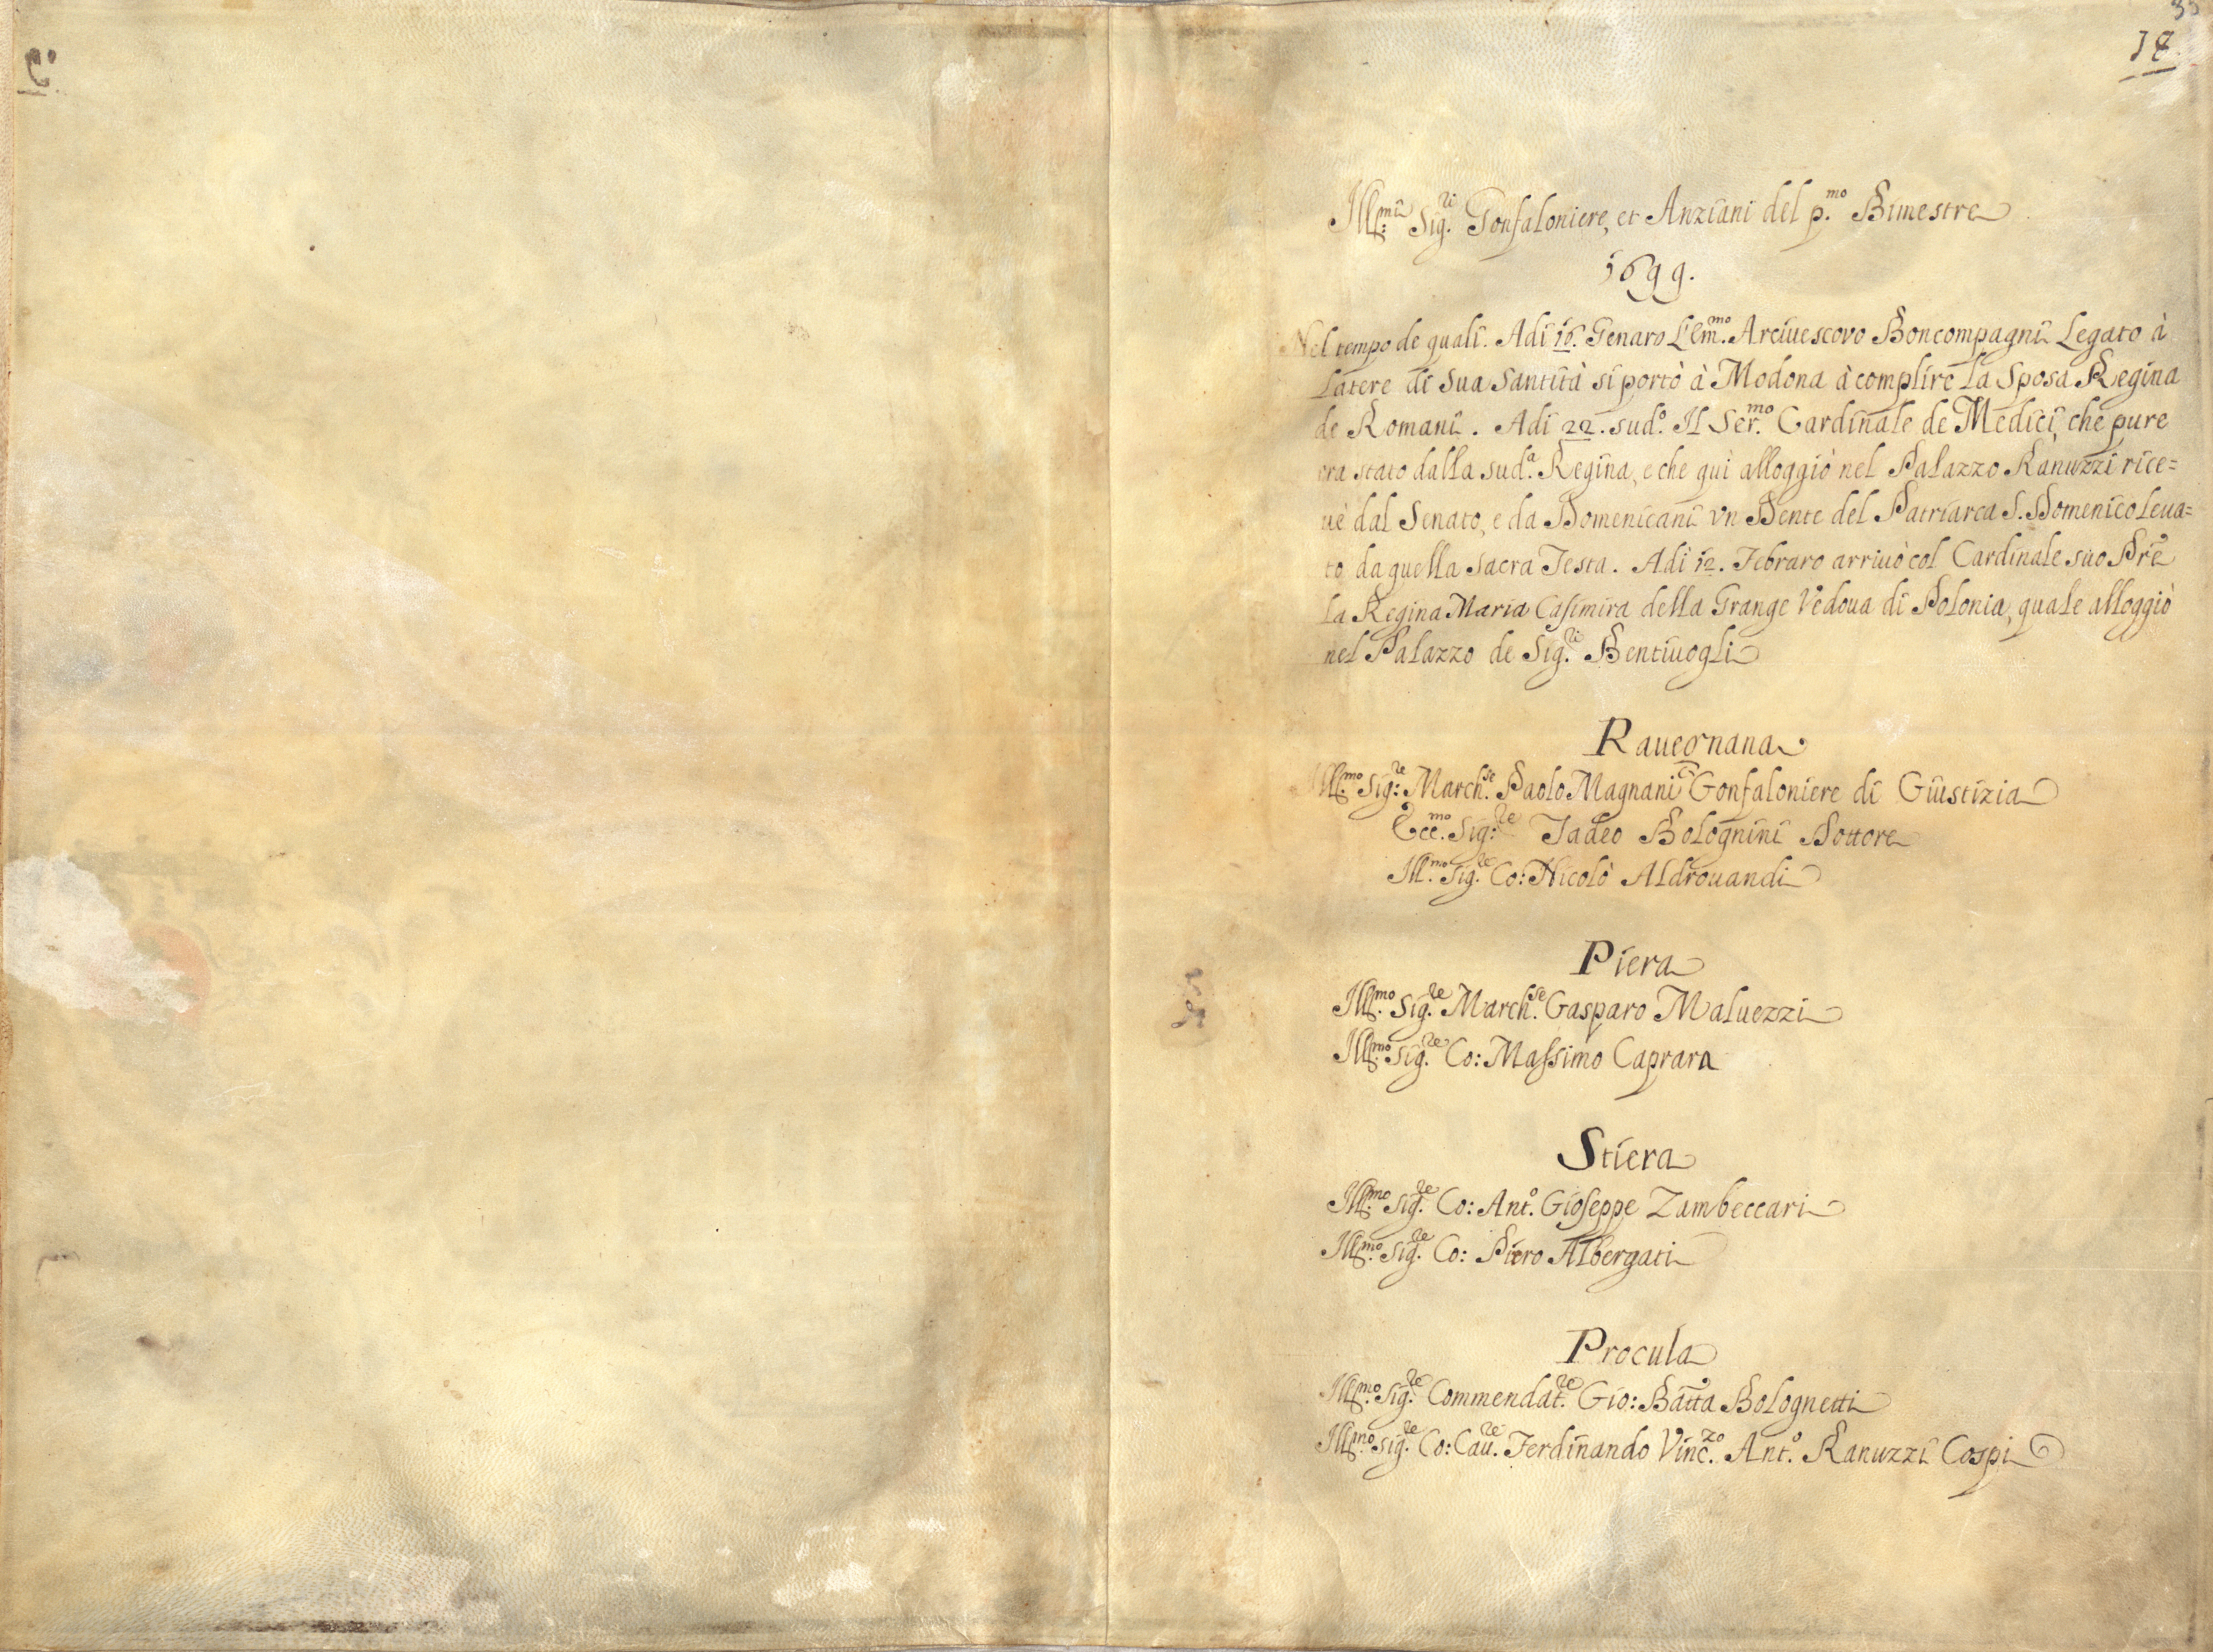 18
Ill.mi Sig.ri Gonfaloniere, et Anziani del p.mo Bimestre
1699.
Nel tempo de quali. Adi 16. Genaro L'Em.mo Arciuescovo Boncompagni Legato à
Latere di Sua Santità si portò à Modona à complire la Sposa Regina
de Romani. Adi 22. sud.o Il Ser.mo Cardinale de Medici, che pure
era stato dalla sud.a Regina, e che quì alloggiò nel Palazzo Ranuzzi rice=
uè dal Senato, e da Domenicani vn Dente del Patriarca S. Domenico leua=
to da quella sacra Testa. Adi 12. Febraro arriuò col Cardinale suo Pre
la Regina Maria Casimira della Grange Vedoua di Polonia, quale alloggiò
nel Palazzo de Sig.ri Bentiuogli
Rauegnana
Ill.mo Sig:re March.se Paolo Magnani Gonfaloniere di Giustizia
Ecc.mo Sig:re Tadeo Bolognini Dottore
Ill.mo Sig.re Co: Nicolò Aldrouandi
Piera
Ill.mo Sig.re March.se Gasparo Maluezzi
Ill.mo Sig.re Co: Massimo Caprara
Stiera
Ill.mo Sig.re Co: Ant.o Gioseppe Zambeccari
Ill.mo Sig.re Co: Piero Albergati
Procula
Ill.mo Sig.re Commendat.re Gio: Batta Bolognetti
Ill.mo Sig.re Co: Cau.re Ferdinando Vinc.zo Ant.o Ranuzzi Cospi